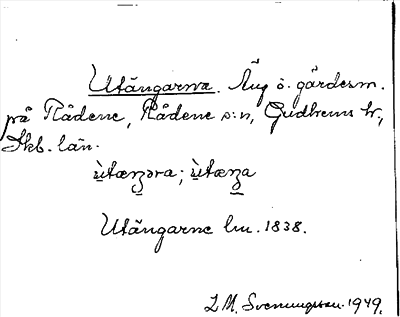 Utängarna. Äng ö. gärdesm.
på Rådene, Rådene s:n, Gudhems hd,
Skb. län.
ùtæŋɜra; ùtæŋa
Utängarne lm. 1838.
L M. Svenungsson. 1949.